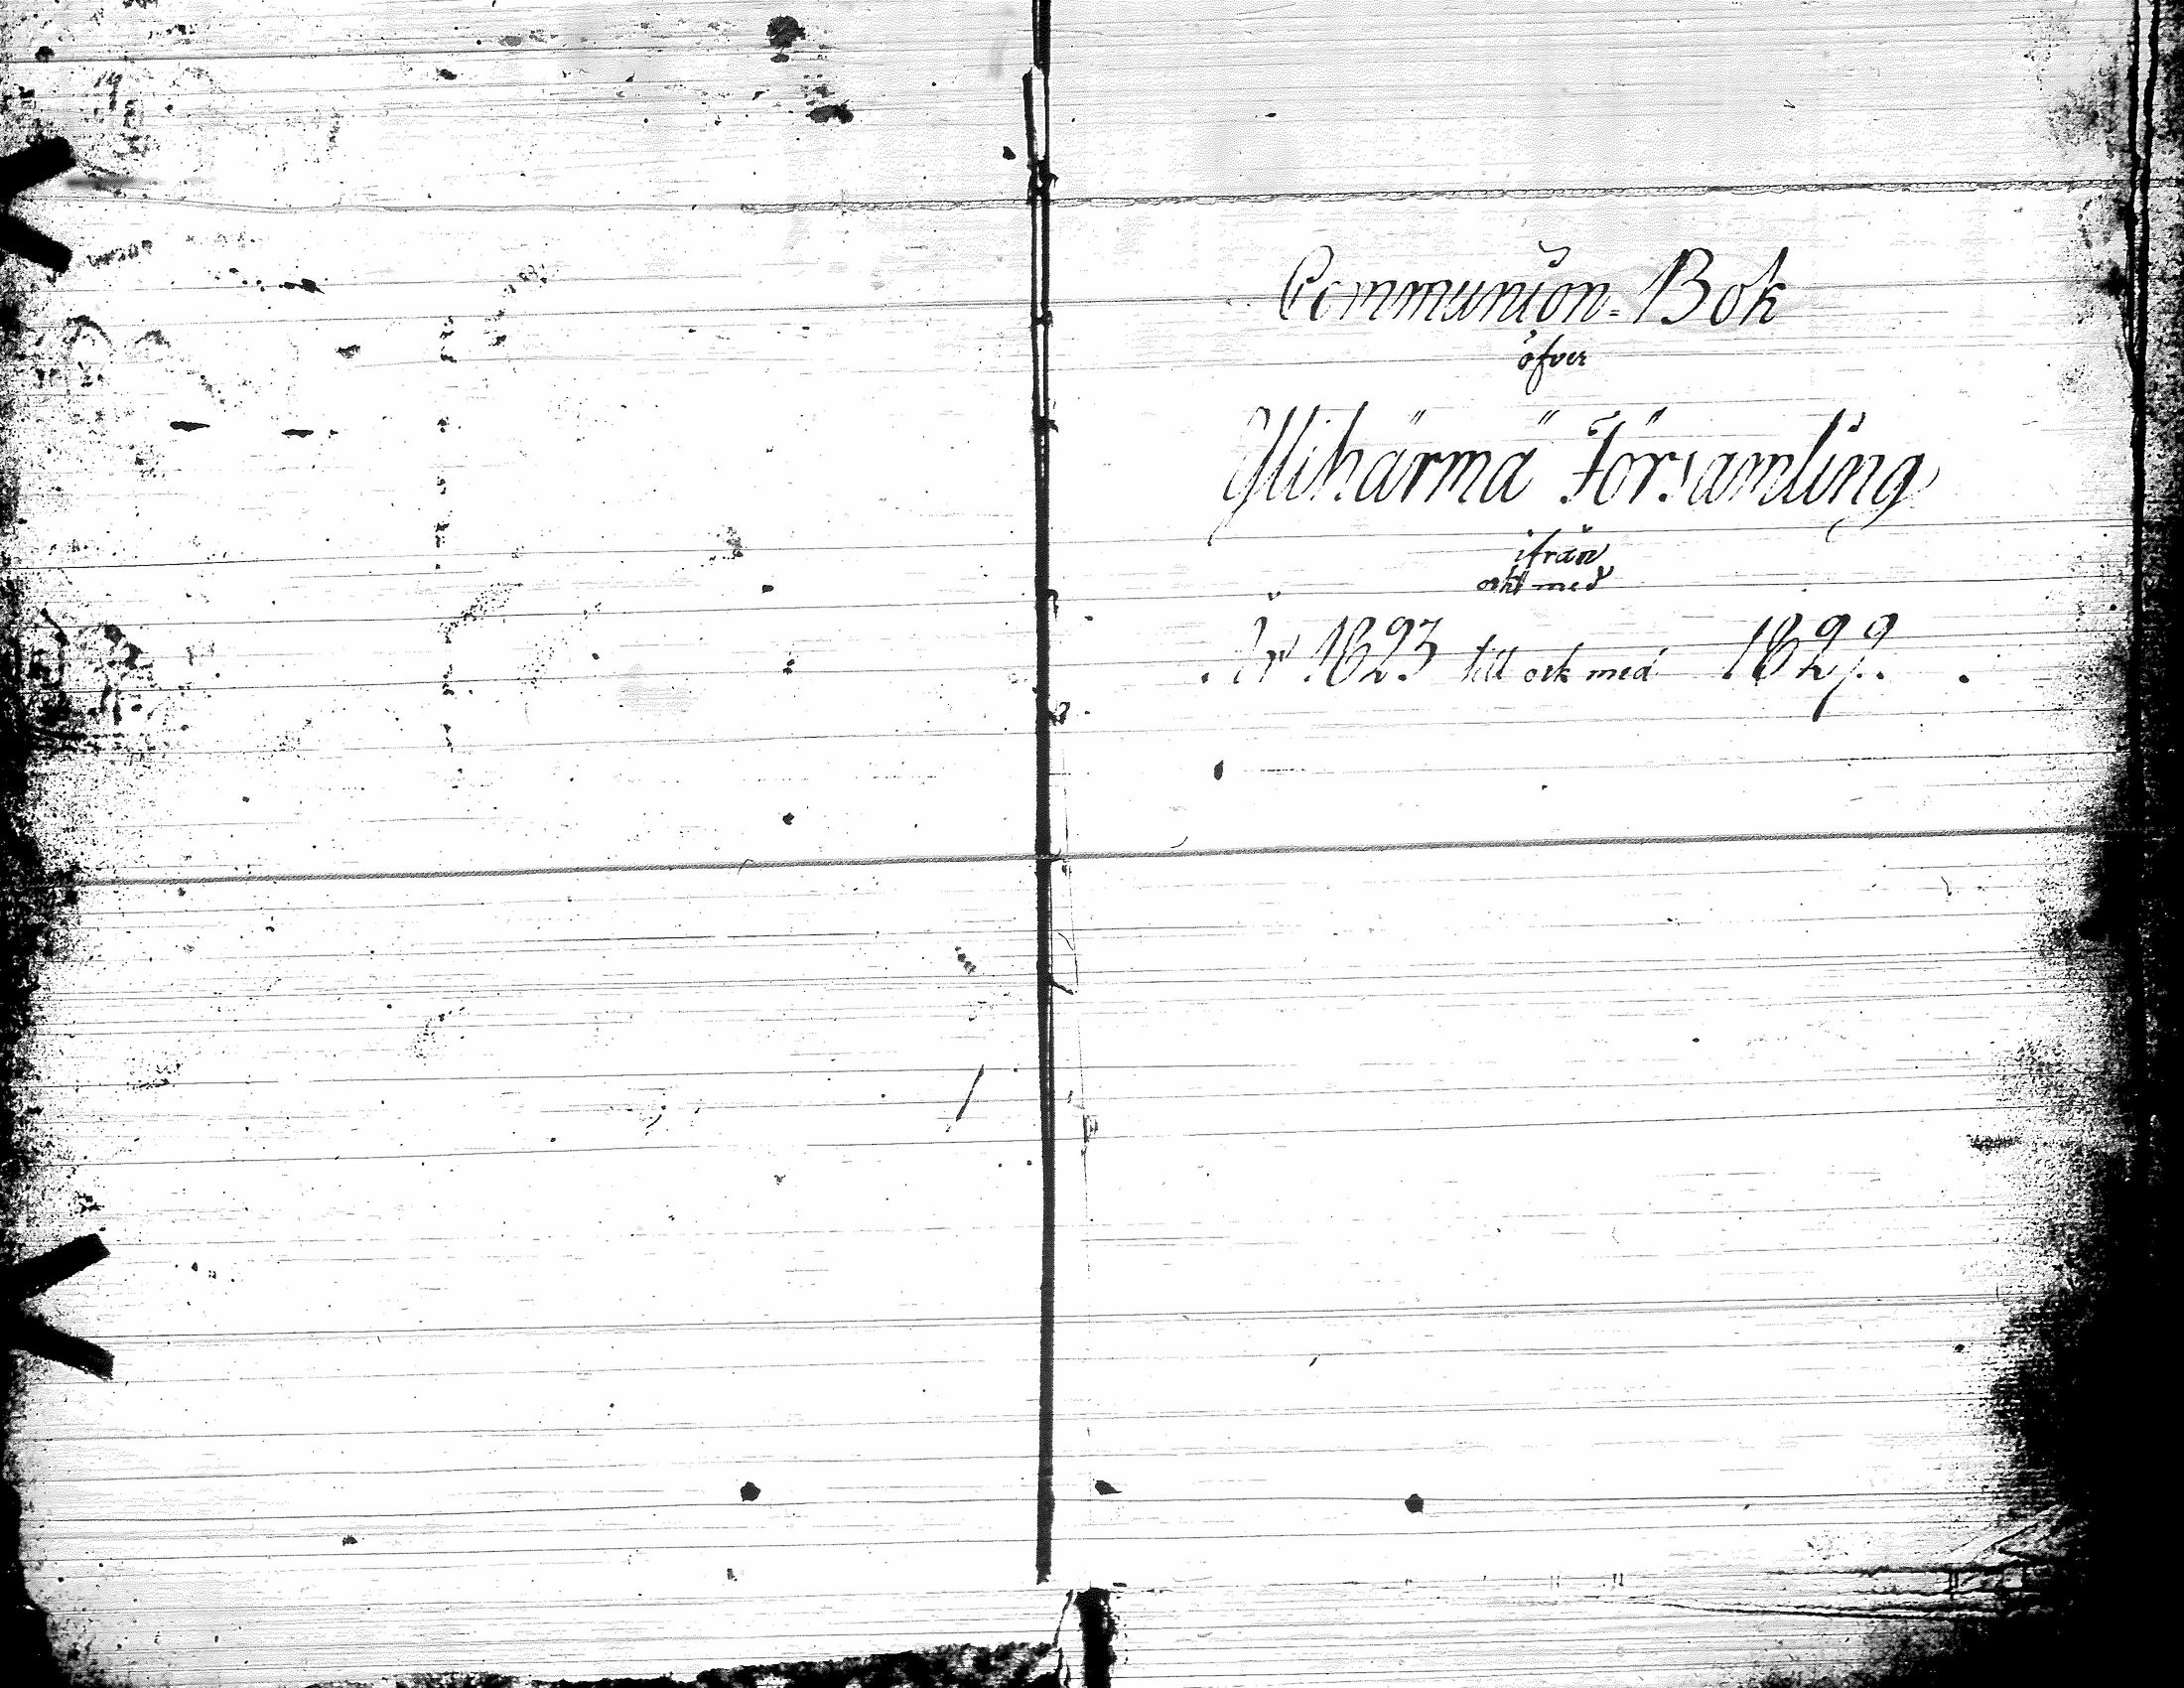 Communion=Bok
öfver
Ylihärmä Församling
ifrån
och med
År 1823 till och med 1829.